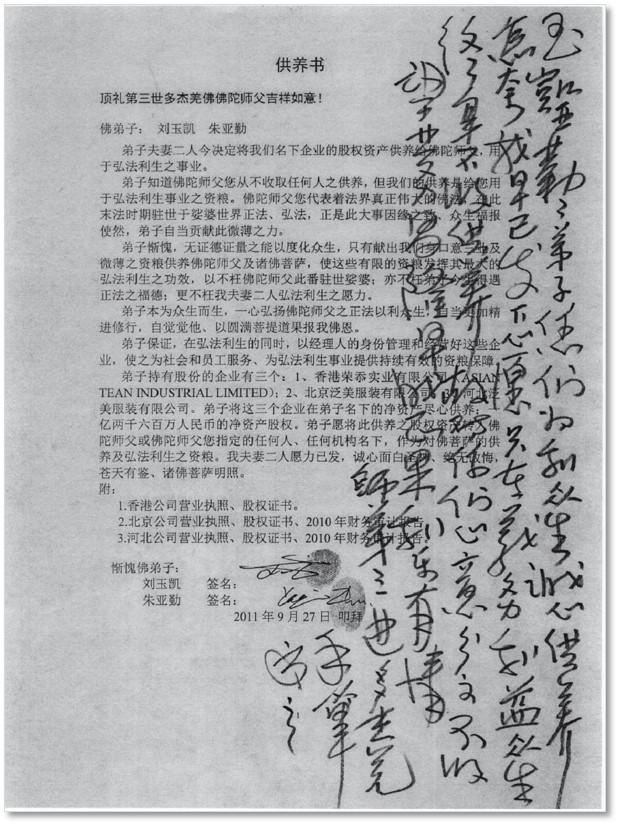 供养书
顶礼第三世多杰羌佛佛陀师父吉祥如意！
佛弟子： 刘玉凯 朱亚勤
弟子夫妻二人今决定将我们名下企业的股权资产供养给佛陀师父，用
于弘法利生之事业。
弟子知道佛陀师父您从不收取任何人之供养，但我们的供养是给您用
于弘法利生事业之资粮。佛陀师父您代表着法界真正伟大的佛法，在此
末法时期驻世于娑婆世界正法、弘法，正是此大事因缘之致、众生福报
使然，弟子自当贡献此微薄之力。
弟子惭愧，无证德证量之能以度化众生，只有献出我们身口意三业及
微薄之资粮供养佛陀师父及诸佛菩萨，使这些有限的资粮发挥其最大的
弘法利生之功效，以不枉佛陀师父此番驻世娑婆；亦不枉弟子今生得遇
正法之福德；更不枉我夫妻二人弘法利生之愿力。
弟子本为众生而生，一心弘扬佛陀师父之正法以利众生，自当更加精
进修行，自觉觉他、以圆满菩提道果报我佛恩。
弟子保证，在弘法利生的同时，以经理人的身份管理和经营好这些企
业，使之为社会和员工服务、为弘法利生事业提供持续有效的资粮保障。
弟子持有股份的企业有三个：1、香港荣忝实业有限公司（ASIAN
TEAN INDUSTRIAL LIMITED）；2、北京泛美服装有限公司；3、河北泛
美服装有限公司。弟子将这三个企业在弟子名下的净资产尽心供养：一
亿两千六百万人民币的净资产股权。弟子愿将此供养之股权资产转入佛
陀师父或佛陀师父您指定的任何人、任何机构名下，作为对佛菩萨的供
养及弘法利生之资粮。我夫妻二人愿力已发，诚心面白圣尊、绝无改悔，
苍天有鉴、诸佛菩萨明照。
附：
1.香港公司营业执照、股权证书。
2.北京公司营业执照、股权证书、2010年财务审计报告。
3.河北公司营业执照、股权证书、2010年财务审计报告。
惭愧佛弟子：
刘玉凯 签名：
朱亚勤 签名：
2011年9月27日 叩拜
玉凯亚勤二弟子你们为利众生诚心供养
我早已发下心愿只在义务利益众生
不收供养
你们心意分文不收
第三世多杰羌